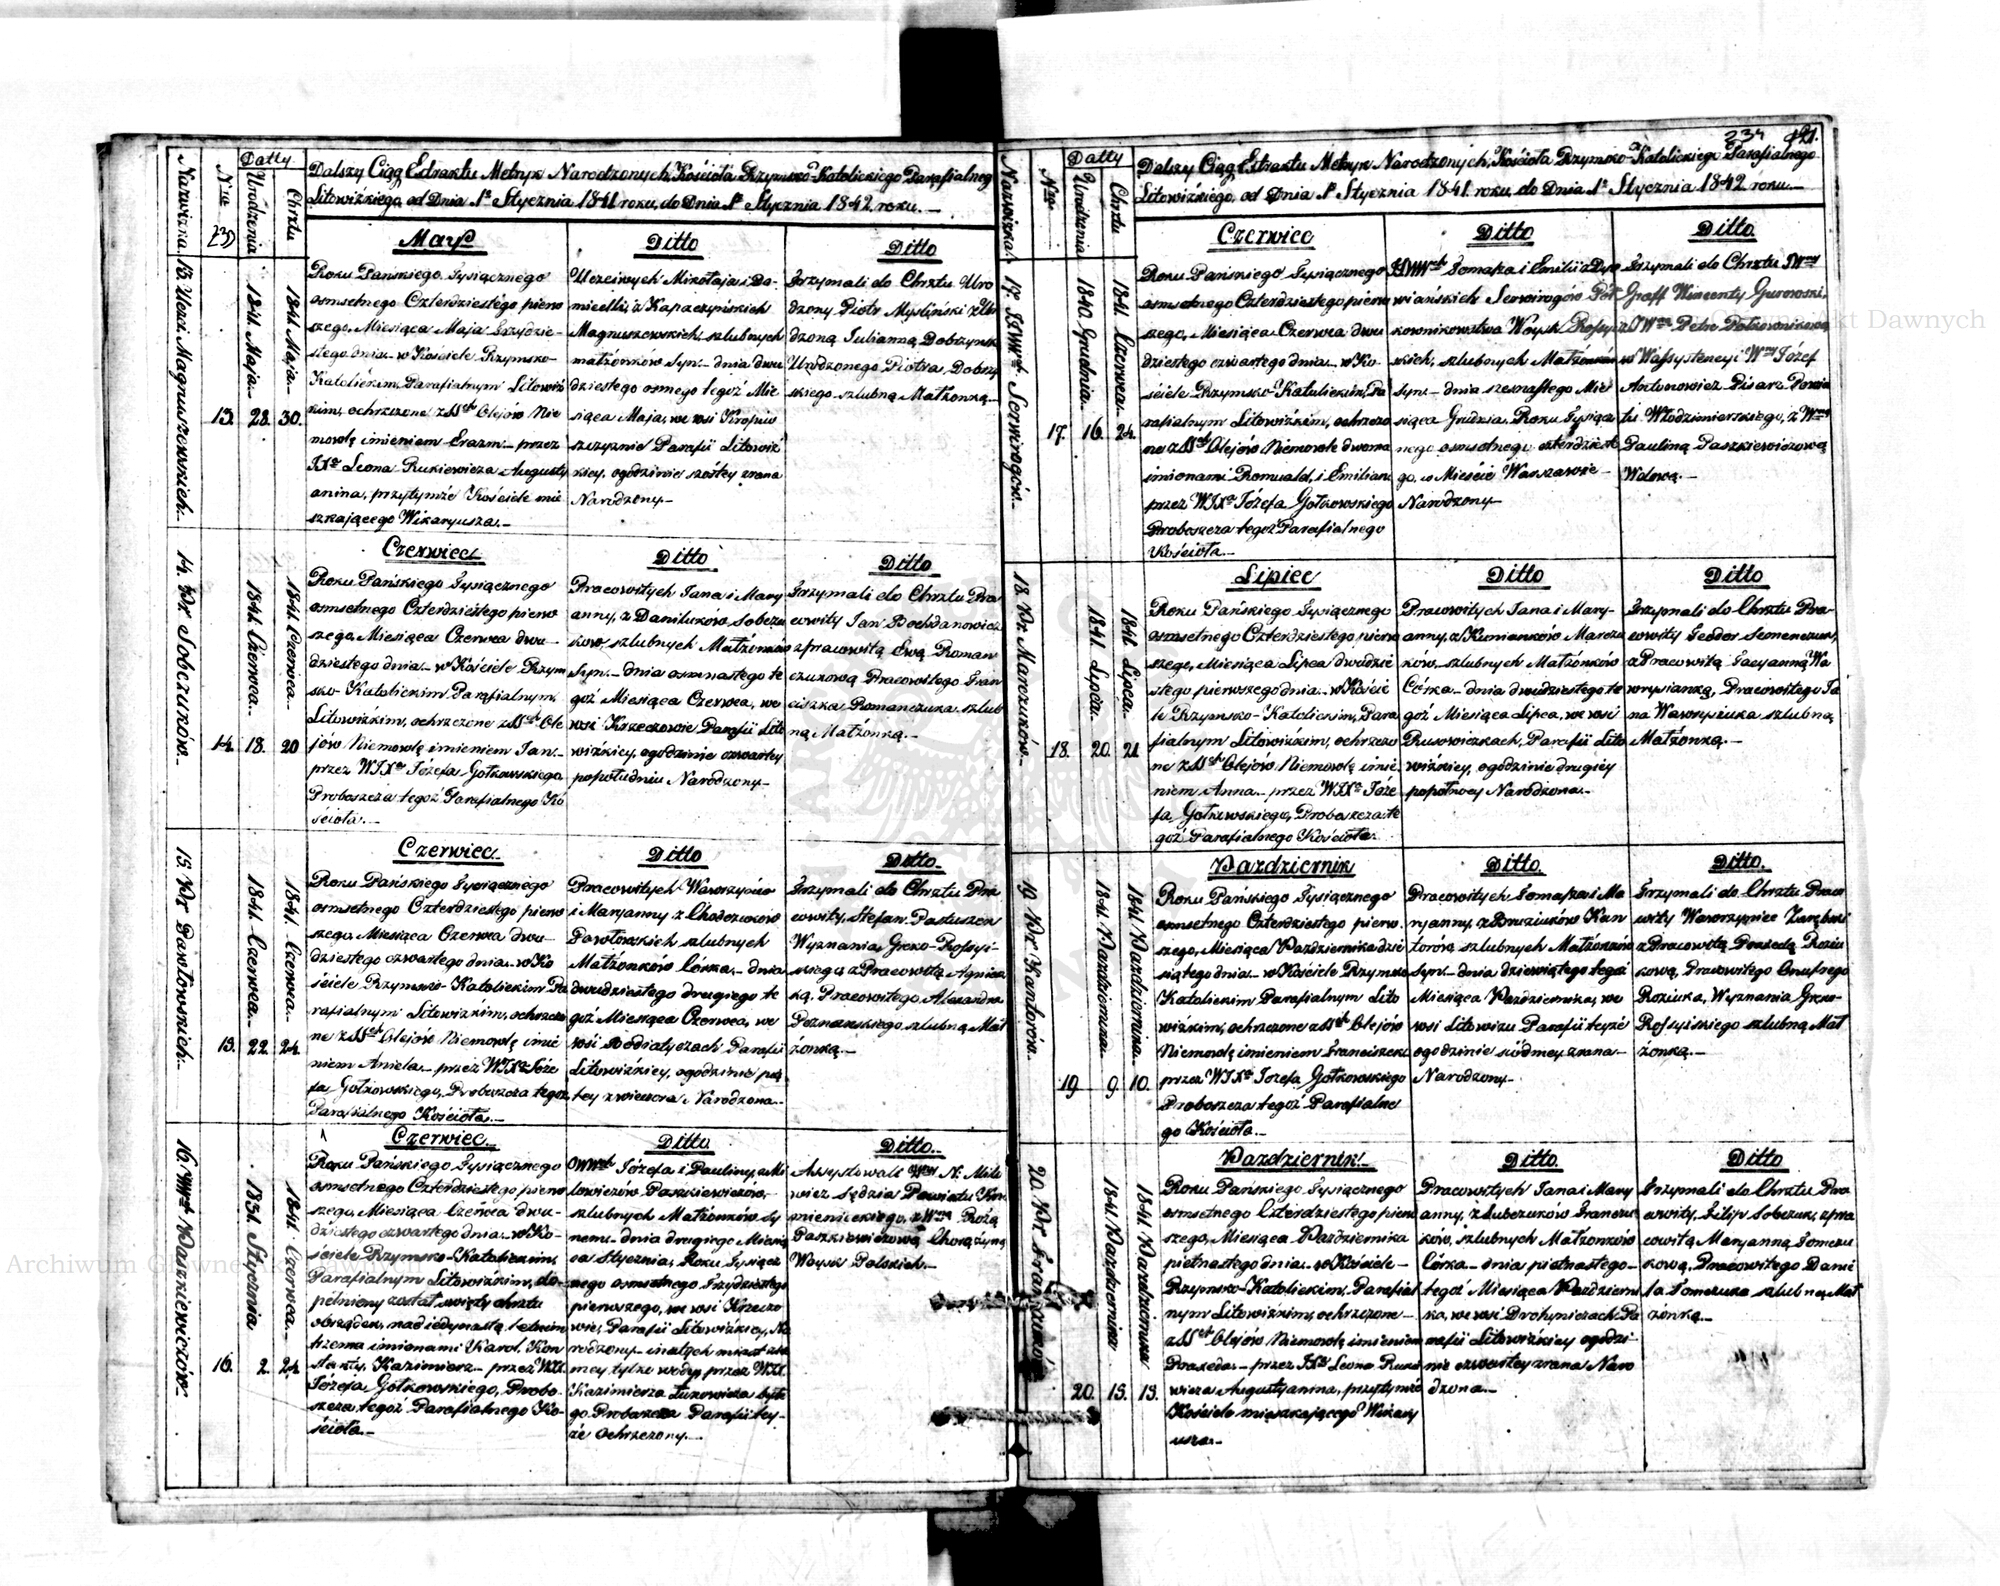 Nazwiska
Nro
Datty
Urodzenia
Chrztu
Dalszy Ciąg Extraktu Metryk Narodzonych, Kościoła Rzymsko-Katolickiego Parafialneg
Litowiżkiego, od Dnia 1o Stycznia 1841 roku, do Dnia 1o Stycznia 1842 roku.—
13. Ucz. Magnuszewskich.—
13.
1841. Maja.
28.
1841 Maja.
30.
May
Roku Pańskiego Tysiącznego
osmsetnego Czterdziestego pierw
szego, Miesiąca Maja trzydzie-
stego dnia.— w Kościele Rzymsko-
Katolickim, Parafialnym Litowiż
kim, ochrzczone z SSch Olejów Nie
mowlę imieniem Erazm.— przez
Leona Rukiewicza Augusty
anina, przytymże Kościele mie
szkającego Wikaryusza.—
Ditto
Uczciwych Mikołaja i Da-
mielli, z Kapaczyńskich
Magnuszewskich, szlubnych
małżonków Syn.— dnia dwu
dziestego osmego tegoż Mie
siąca Maja, we wsi Kropiw
szczyznie Parafii Litowiż
kiey, ogodzinie szóstey zrana
Narodzony.—
Ditto
Trzymali do Chrztu Uro
dzony Piotr Mysliński z Uro
dzoną Julianną, Dobrzyńsk
Urodzonego Piotra, Dobrzy
skiego szlubną Małżonką.—
14. Pr. Sobczuków.—
14.
1841 Czerwca.
18.
1841 Czerwca.
20
Czerwiec
Roku Pańskiego Tysiącznego
osmsetnego Czterdziestego pierw
szego, Miesiąca Czerwca dwu-
dziestego dnia.— w Kościele Rzym
sko-Katolickim Parafialnym,
Litowiżkim, ochrzczone z SSch Ole
jów Niemowlę imieniem Jan.—
przez WJXa Józefa Gołkowskiego,
Proboszcza tegoż Parafialnego Ko
ścioła.—
Ditto
Pracowitych Jana i Mary
anny, z Daniluków Sobczu
ków, szlubnych Małżonków
Syn.— dnia osmnastego te
goż Miesiąca Czerwca, we
wsi Krzeczowie Parafii Lito
wiżkiey, ogodzinie czwartey
popołudniu Narodzony.—
Ditto
Trzymali do Chrztu Pra
cowity Jan Bochdanowicz
z pracowitą Ewą Roman
czukową Pracowitego Fran
ciszka Romanczuka szlub
ną Małżonką.—
15. Pr. Pawłowskich.—
15.
1841. Czerwca.
22.
1841. Czerwca.
24.
Czerwiec
Roku Pańskiego Tysiącznego
osmsetnego Czterdziestego pierw
szego, Miesiąca Czerwca dwu-
dziestego czwartego dnia.— w Ko
ściele Rzymsko-Katolickim Pa
rafialnym Litowiżkim, ochrzczo
ne z SSch Olejów Niemowlę imie
niem Aniela.— przez WJXa Józe
fa, Gołkowskiego, Proboszcza tegoż
Parafialnego Kościoła.—
Ditto
Pracowitych Wawrzyńca
i Maryanny z Chodczuków
Pawłowskich szlubnych
Małżonków Córka.— dnia
dwudziestego drugiego te
goż Miesiąca Czerwca, we
wsi Podiatyczach Parafii
Litowiżkiey, ogodzinie pią
tey zwieczora Narodzona.—
Ditto.
Trzymali do Chrztu Pra
cowity, Stefan Pastuszen
Wyznania, Greko-Rossyi-
skiego z Pracowitą Agniesz
ką, Pracowitego, Alexandra
Poznanskiego, szlubną Mał
żonką.—
16. Paszkiewiczów.—
16.
1831. Stycznia
2.
1841 Czerwca.
24
Czerwiec.
Roku Pańskiego Tysiącznego
osmsetnego Czterdziestego pierw
szego, Miesiąca Czerwca dwu-
dziestego czwartego dnia.— w Ko-
ściele Rzymsko-Katolickim,
Parafialnym Litowiżkim, do-
pełniony został święty chrztu
obrządek, nad iedynastą letnim
trzema imionami Karol, Kon
stanty, Kazimierz.— przez WJX
Józefa Gołkowskiego, Probo-
szcza tegoż Parafialnego Ko-
ścioła.—
Ditto
Józefa i Pauliny, z Mi
lowiczów Paszkiewiczów,—
szlubnych Małżonków Sy
nem.— dnia drugiego Miesią
ca Stycznia, Roku Tysiącz
nego osmsetnego Trzydziestego
pierwszego, we wsi Krzeczo
wie, Parafii Litowiżkiey, Na
rodzony.—
mcy tylko wody, przez WJX
Kazimierza Łukowicza byłe
go Proboszcza Parafii tey-
że Ochrzczony.—
Ditto.
Assystowali Wny N. Mile
wicz Sędzia Powiatu Krze
mienieckiego, z Wną Rozą
Paszkiewiczową Chorążyną
Woysk Polskich.—
234
Nazwiska
Nro
Datty
Urodzenia
Chrztu
Dalszy Ciąg Extraktu Metryk Narodzonych, Kościoła Rzymsko-Katolickiego Parafialnego
Litowiżkiego, od Dnia 1o Stycznia 1841 roku, do Dnia 1o Stycznia 1842 roku.—
17. Serwirogów.—
17.
1840. Grudnia.
16.
1841. Czerwca.
24.
Czerwiec
Roku Pańskiego Tysiącznego
osmsetnego Czterdziestego pierw
szego, Miesiąca Czerwca dwu
dziestego czwartego dnia.— w Ko-
ściele Rzymsko-Katolickim, Pa
rafialnym Litowiżkim, ochrzczo
ne z SSch Olejów Niemowlę dwoma
imionami Romuald, i Emilian
przez WJXa Józefa Gołkowskiego
Proboszcza tegoż Parafialnego
Kościoła.—
Ditto
Tomasza i Emilii z Dyo
wiańskich Serwirogów Pół
kownikowstwa Woysk Rossyy
skich, szlubnych Małżonków
Syn.— dnia szesnastego Mie
siąca Grudnia, Roku Tysiącz
nego osmsetnego czterdzieste
go, w Mieście Warszawie—
Narodzony.—
Ditto
Trzymali do Chrztu JWny
Graff Wincenty Gurowski,
z JWną Petro Połkownikową,
w Assystencyi Wny Józef
Antonowicz Pisarz Powia
tu Włodzimierskiego, z Wną
Pauliną Paszkiewiczową
Wdową.—
18. Pr. Marczuków.—
18.
1841. Lipca.
20.
1841 Lipca.
21
Lipiec
Roku Pańskiego Tysiącznego
osmsetnego Czterdziestego, pierw
szego, Miesiąca Lipca dwudzie
stego pierwszego dnia.— w Kościo
le Rzymsko-Katolickim, Para
fialnym Litowiżkim, ochrzczo
ne z SSch Olejów Niemowlę imie
niem Anna.— przez WJXa Józe
fa, Gołkowskiego, Proboszcza te
goż Parafialnego Kościoła.—
Ditto
Pracowitych Jana i Mary-
anny, z Kuniańków Marczu
ków, szlubnych Małżonków
Córka.— dnia dwudziestego te
goż Miesiąca Lipca, we wsi
Rusowiczkach, Parafii Lito
wiżkiey, ogodzinie drugiey
popołnocy Narodzona.—
Ditto
Trzymali do Chrztu Pra-
cowity Teodor Semenczuk,
z Pracowitą, Tacyanną Wa
wrysianką, Pracowitego Ja
na Wawrysiuka szlubną
Małżonką.—
19 Pr. Kantorów.
19
1841. Pazdziernika.
9.
1841. Pazdziernika.
10.
Pazdziernik
Roku Pańskiego Tysiącznego
osmsetnego Czterdziestego pierw
szego, Miesiąca Pazdziernika dzie
siątego dnia.— w Kościele Rzymsko
Katolickim Parafialnym Lito
wiżkim, ochrzczone z SSch Olejów
Niemowlę imieniem Franciszek
przez WJXa Józefa Gołkowskiego
Proboszcza tegoż Parafialne
go Kościoła.—
Ditto.
Pracowitych Tomasza i Ma
ryanny, z Pruziuków Kan
torów, szlubnych Małżonków
Syn.— dnia dziewiątego tegoż
Miesiąca Pazdziernika, we
wsi Litowiżu Parafii teyże
ogodzinie siódmey zrana—
Narodzony.—
Ditto.
Trzymali do Chrztu Praco
wity Wawrzyniec Zarębski
z Pracowitą, Praxedą Roziu
kową, Pracowitego Onufrego
Roziuka, Wyznania Greko-
Rossyiskiego szlubną Mał
żonką.—
20. Pr. Franczuków.
20.
1841. Pazdziernika
15.
1841. Pazdziernika
15.
Pazdziernik.
Roku Pańskiego Tysiącznego
osmsetnego Czterdziestego pierw
szego, Miesiąca Pazdziernika
piętnastego dnia.— w Kościele—
Rzymsko-Katolickim, Parafial
nym Litowiżkim, ochrzczone—
z SSch Olejów Niemowlę imieniem
Praxeda.— przez JXa Leona Ruki
wicza Augustyanina, przytymże
Kościele mieszkającego Wikary
usza.—
Ditto
Pracowitych Jana i Mary
anny, z Łubczuków Franczu
ków, szlubnych Małżonków
Córka.— dnia piętnastego—
tegoż Miesiąca Pazdzierni
ka, we wsi Drohyniczach, Pa
rafii Litowiżkiey ogodzi-
nie czwartey zrana Naro
dzona.—
Ditto
Trzymali do Chrztu Pra
cowity, Filip Sobczuk, z pra
cowitą Maryanną Tomczu
kową, Pracowitego Danie
ła Tomczuka szlubną Mał
żonką.—
Archiwum Główne Akt Dawnych